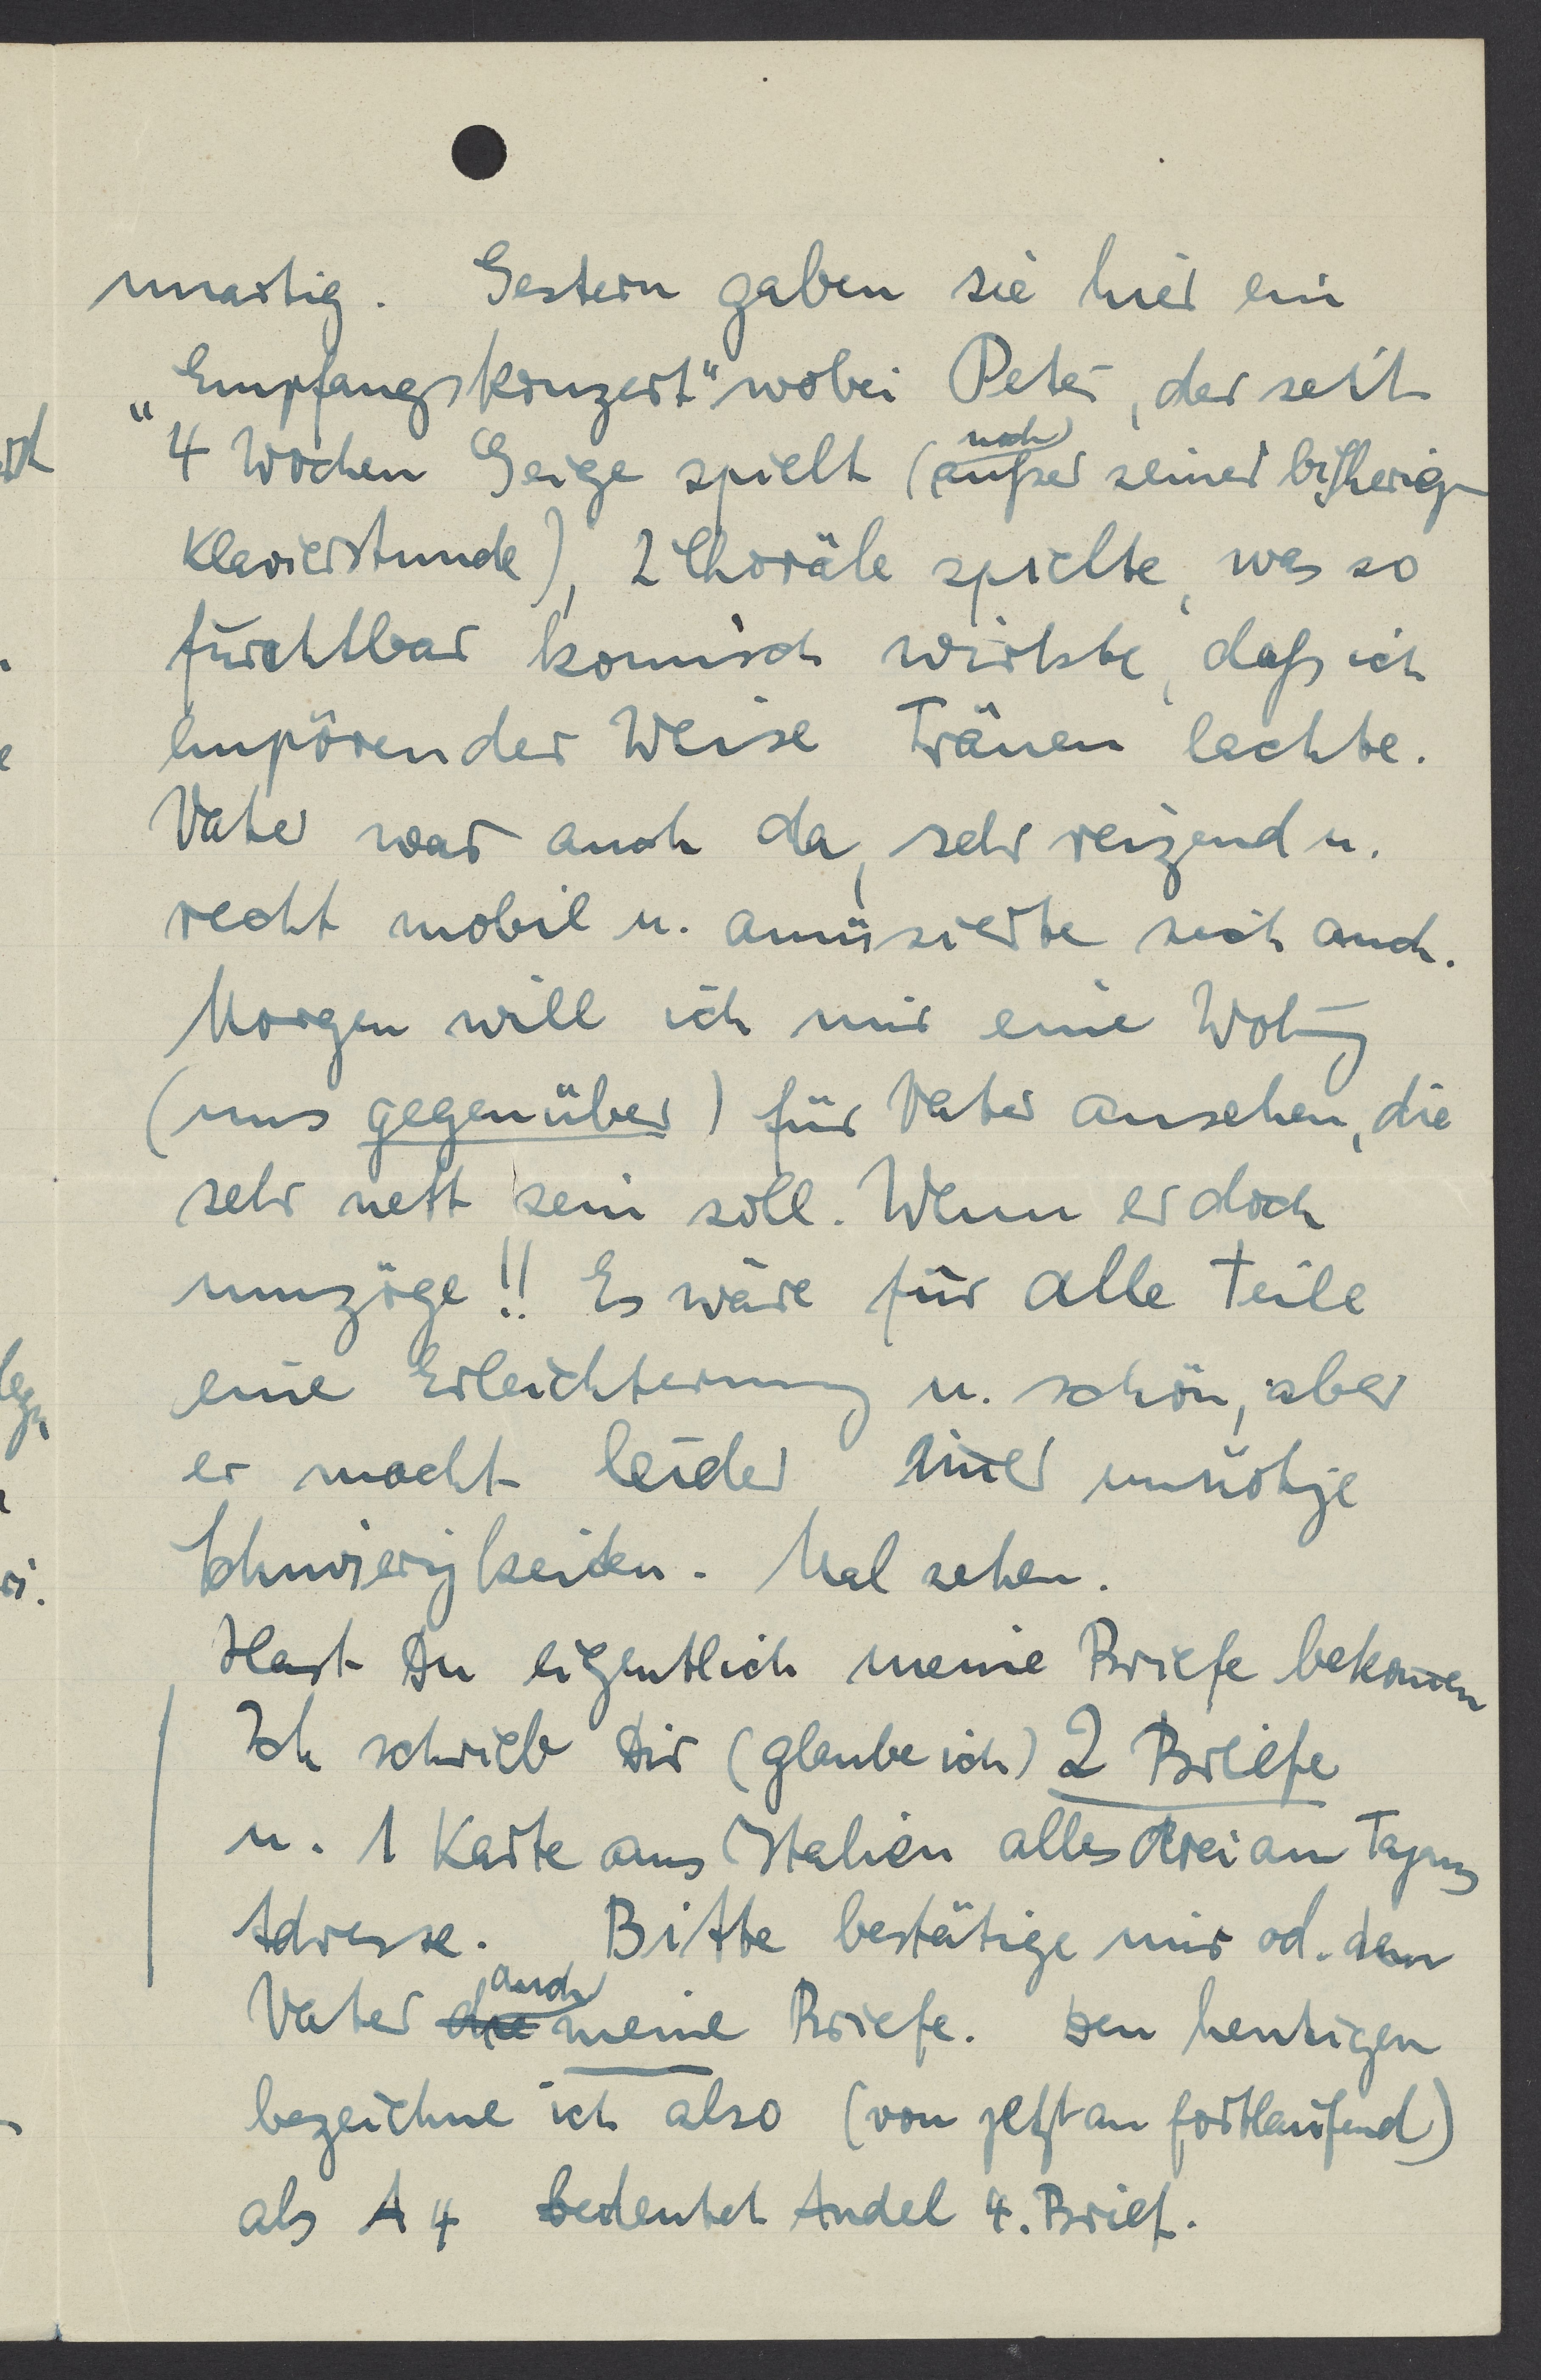 unartig. Gestern gaben sie hier ein
„Empfangskonzert“ wobei Peter, der seit
4 Wochen Geige spielt (noch außer seiner bisherigen
Klavierstunde), 2 Choräle spielte, was so
furchtbar komisch wirkte, daß ich
empörender Weise Tränen lachte.
Vater war auch da, sehr reizend u.
recht mobil u. amüsierte sich auch.
Morgen will ich mir eine Wohng
(uns gegenüber) für Vater ansehen, die
sehr nett sein soll. Wenn er doch
umzöge!! Es wäre für alle Teile
eine Erleichterung u. schön, aber
er macht leider im̅er unnötige
Schwierigkeiten. Mal sehen.
Hast Du eigentlich meine Briefe bekom̅en
Ich schrieb Dir (glaube ich) 2 Briefe
u. 1 Karte aus Italien alles drei an
Adresse. Bitte bestätige mir od. dem
Vater die auch meine Briefe. Den heutigen
bezeichne ich also (von jetzt an fortlaufend)
als A 4 bedeutet Andel 4. Brief.